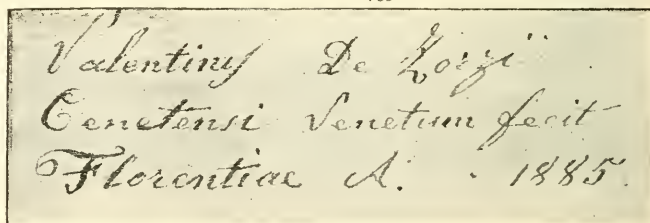 Valentinus De Zorzi
Cenetensi Venetum fecit
Florentiae A. 1885.